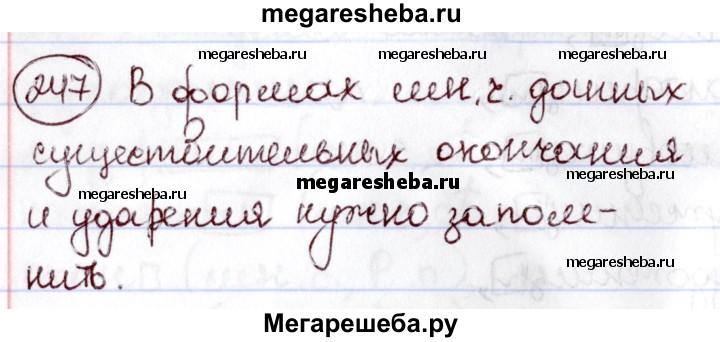 megaresheba.ru
megaresheba.ru megaresheba.ru megaresheba.ru
247 В формах мн. ч. данных
существительных окончания
megaresheba.ru megaresheba.ru megaresheba.ru
и ударения нужно запом-
нить.
megaresheba.ru
Мегарешеба.ру